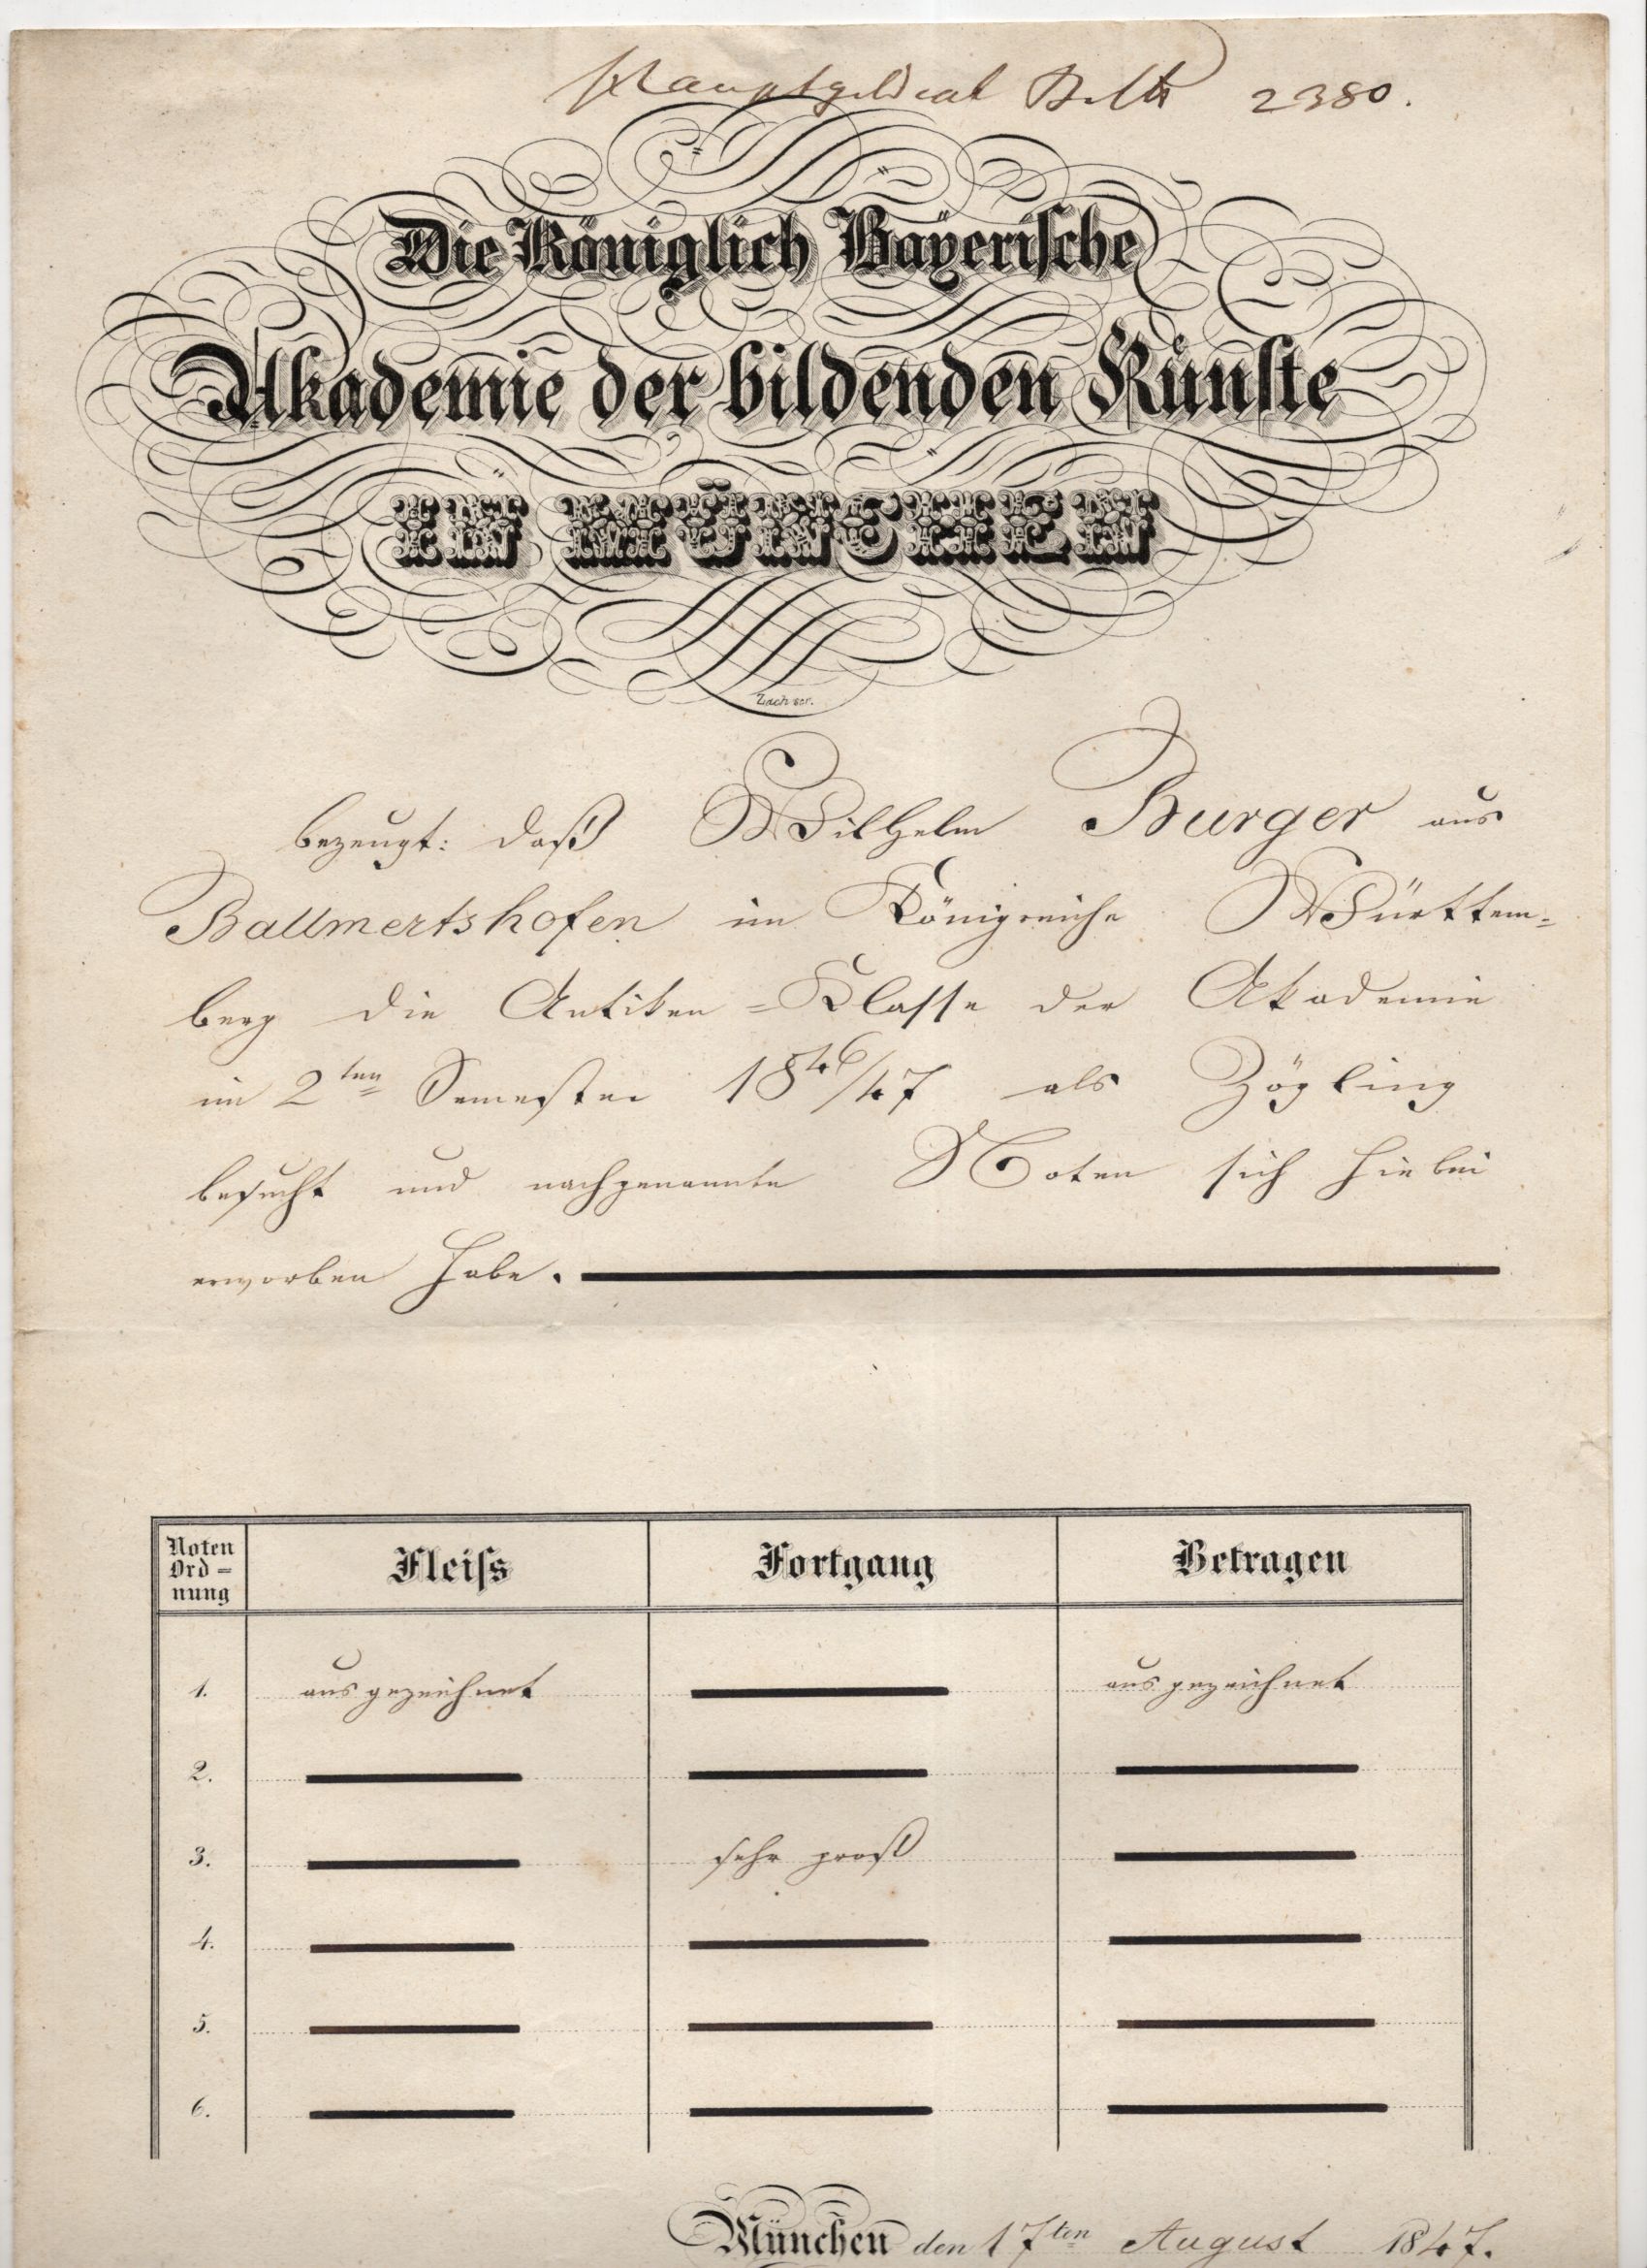 2380.
Die Königlich Bayerische
Akademie der bildenden Künste
IN MÜNCHEN
Zach scr.
bezeugt: daß Wilhelm Burger aus
Ballmertshofen im Königreiche Württem=
berg die Antiken=Klasse der Akademie
im 2ten Semester 1846/47 als Zögling
besucht und nachgenannte Noten sich hiebei
erworben habe.
Noten Fleiſs Fortgang Betragen
Ord=
nung
1. ausgezeichnet ausgezeichnet
2.
3. sehr groß
4.
5.
6.
München den 17ten August 1847.